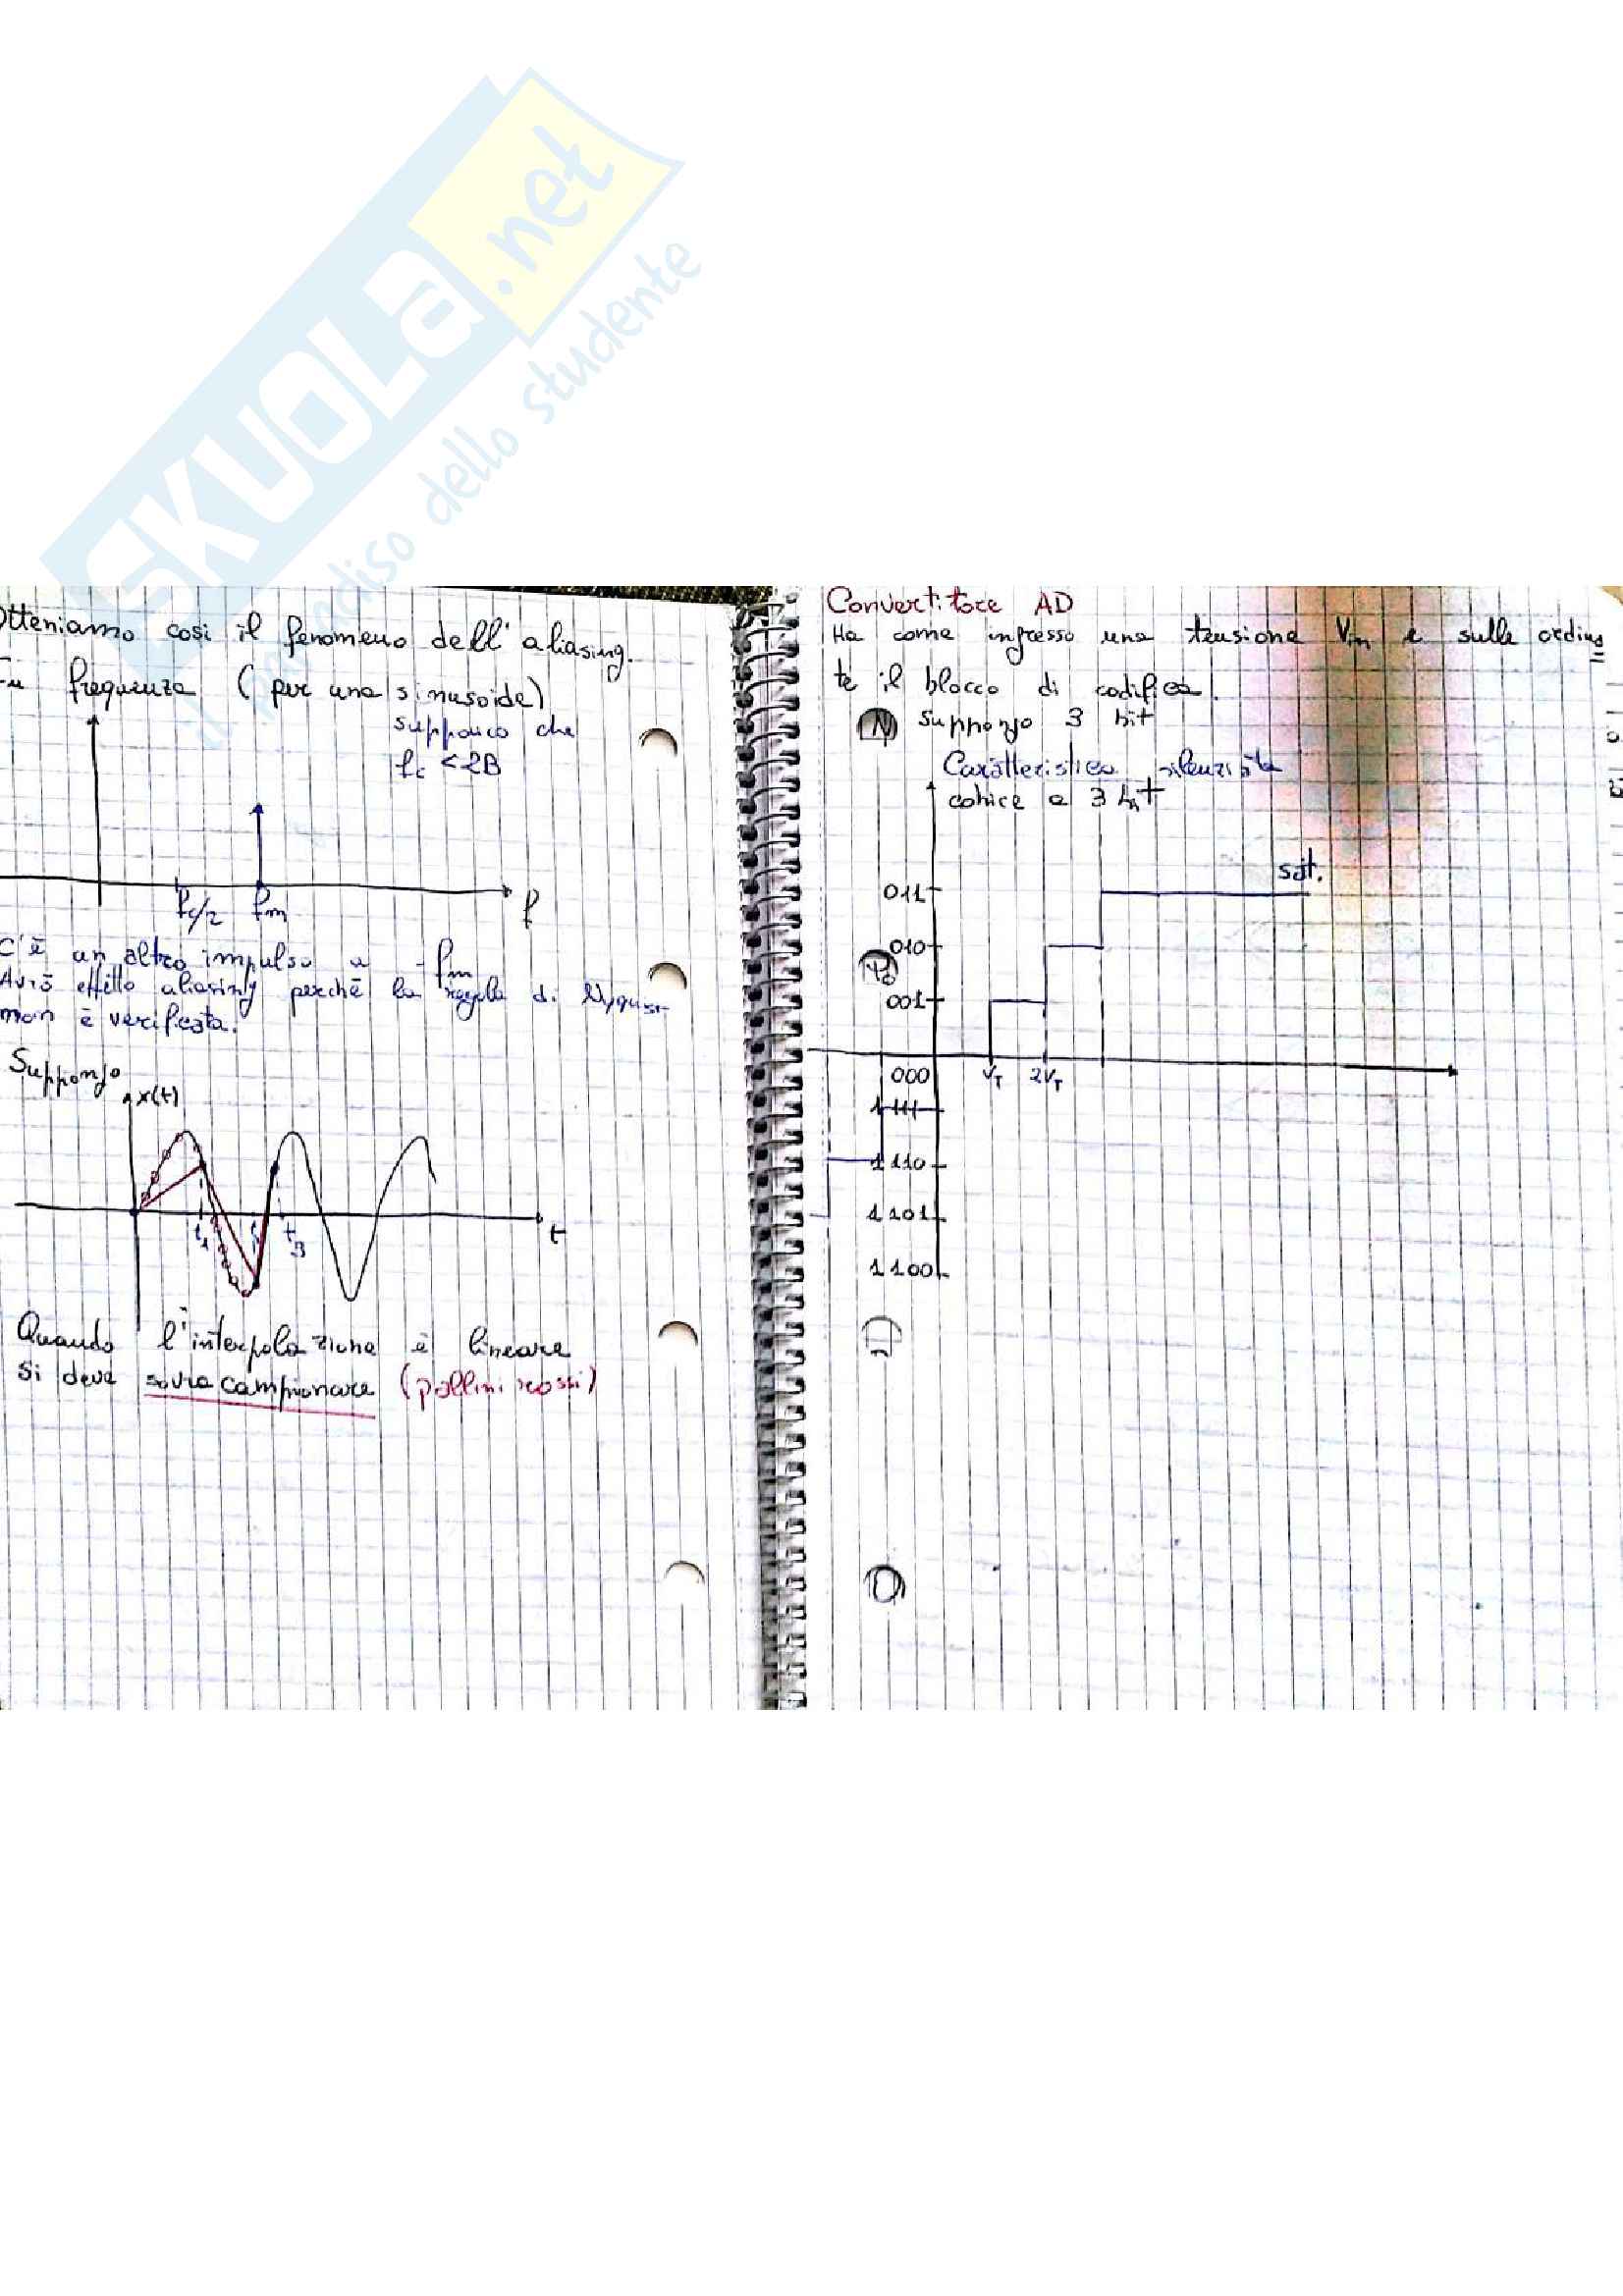 SKUOLA.net
il paradiso dello studente
Otteniamo così il fenomeno dell'aliasing.
In frequenza (per una sinusoide)
suppongo che
fc < 2B
fc/2 fm f
C'è un altro impulso a -fm
Avrò effetto aliasing perchè la regola di Nyquist
non è verificata.
Suppongo
x(t)
t1 t3 t
Quando l'interpolazione è lineare
si deve sovracampionare (pallini rossi)
Convertitore AD
Ha come ingresso una tensione Vin e sulle ordina
te il blocco di codifica.
N Suppongo 3 bit
Caratteristica silenziata
codice a 3 bit
sat.
011
010
001
000 VT 2VT
111
110
101
100